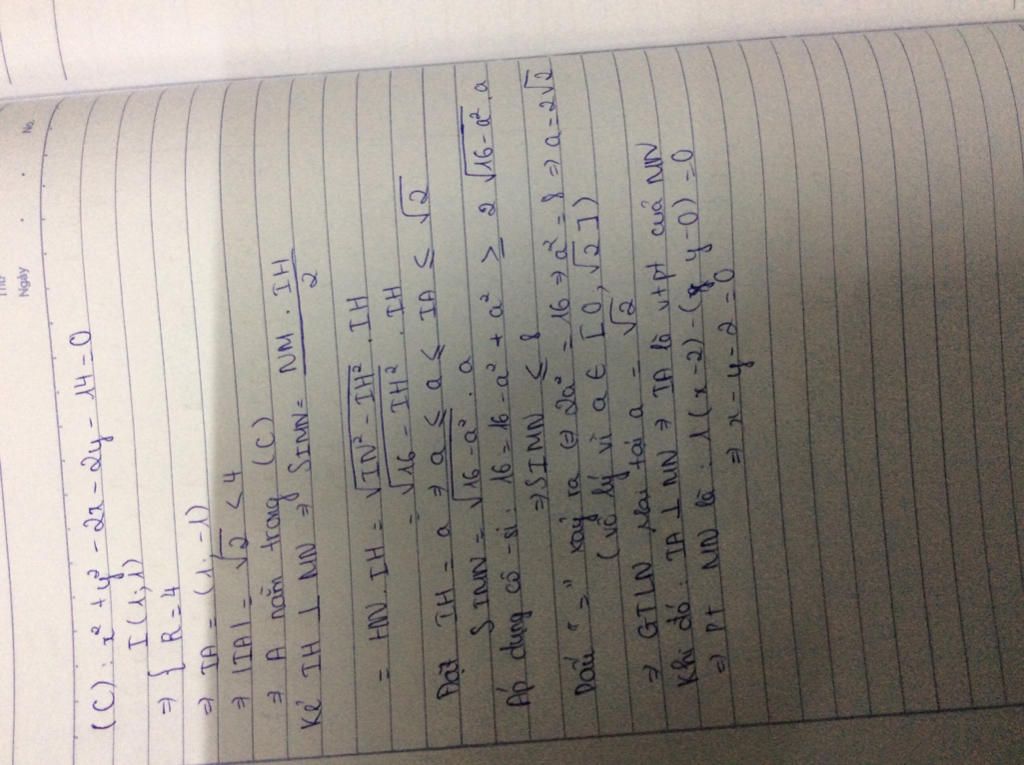 Thứ
Ngày
No.
(C): x² + y² - 2x - 2y - 14 = 0
⇒ { I(1;1)
R = 4
⇒ IA = (1, -1)
⇒ |IA| = √2 < 4
⇒ A nằm trong (C)
Kẻ IH ⊥ MN ⇒ SIMN = NM . IH / 2
= HN . IH = √(IN² - IH²) . IH
= √(16 - IH²) . IH
Đặt IH = a ⇒ a ≤ a ≤ IA ≤ √2
SIMN = √(16 - a²) . a
Áp dụng cô-si: 16 = 16 - a² + a² ≥ 2√(16 - a²) . a
⇒ SIMN ≤ 8
Dấu "=" xảy ra ⇔ 2a² = 16 ⇒ a² = 8 ⇒ a = 2√2
(vô lý vì a ∈ [0, √2])
⇒ GTLN tại a = √2
Khi đó: IA ⊥ MN ⇒ IA là vtpt của MN
⇒ pt MN là: 1(x-2) - (y-0) = 0
⇒ x - y - 2 = 0